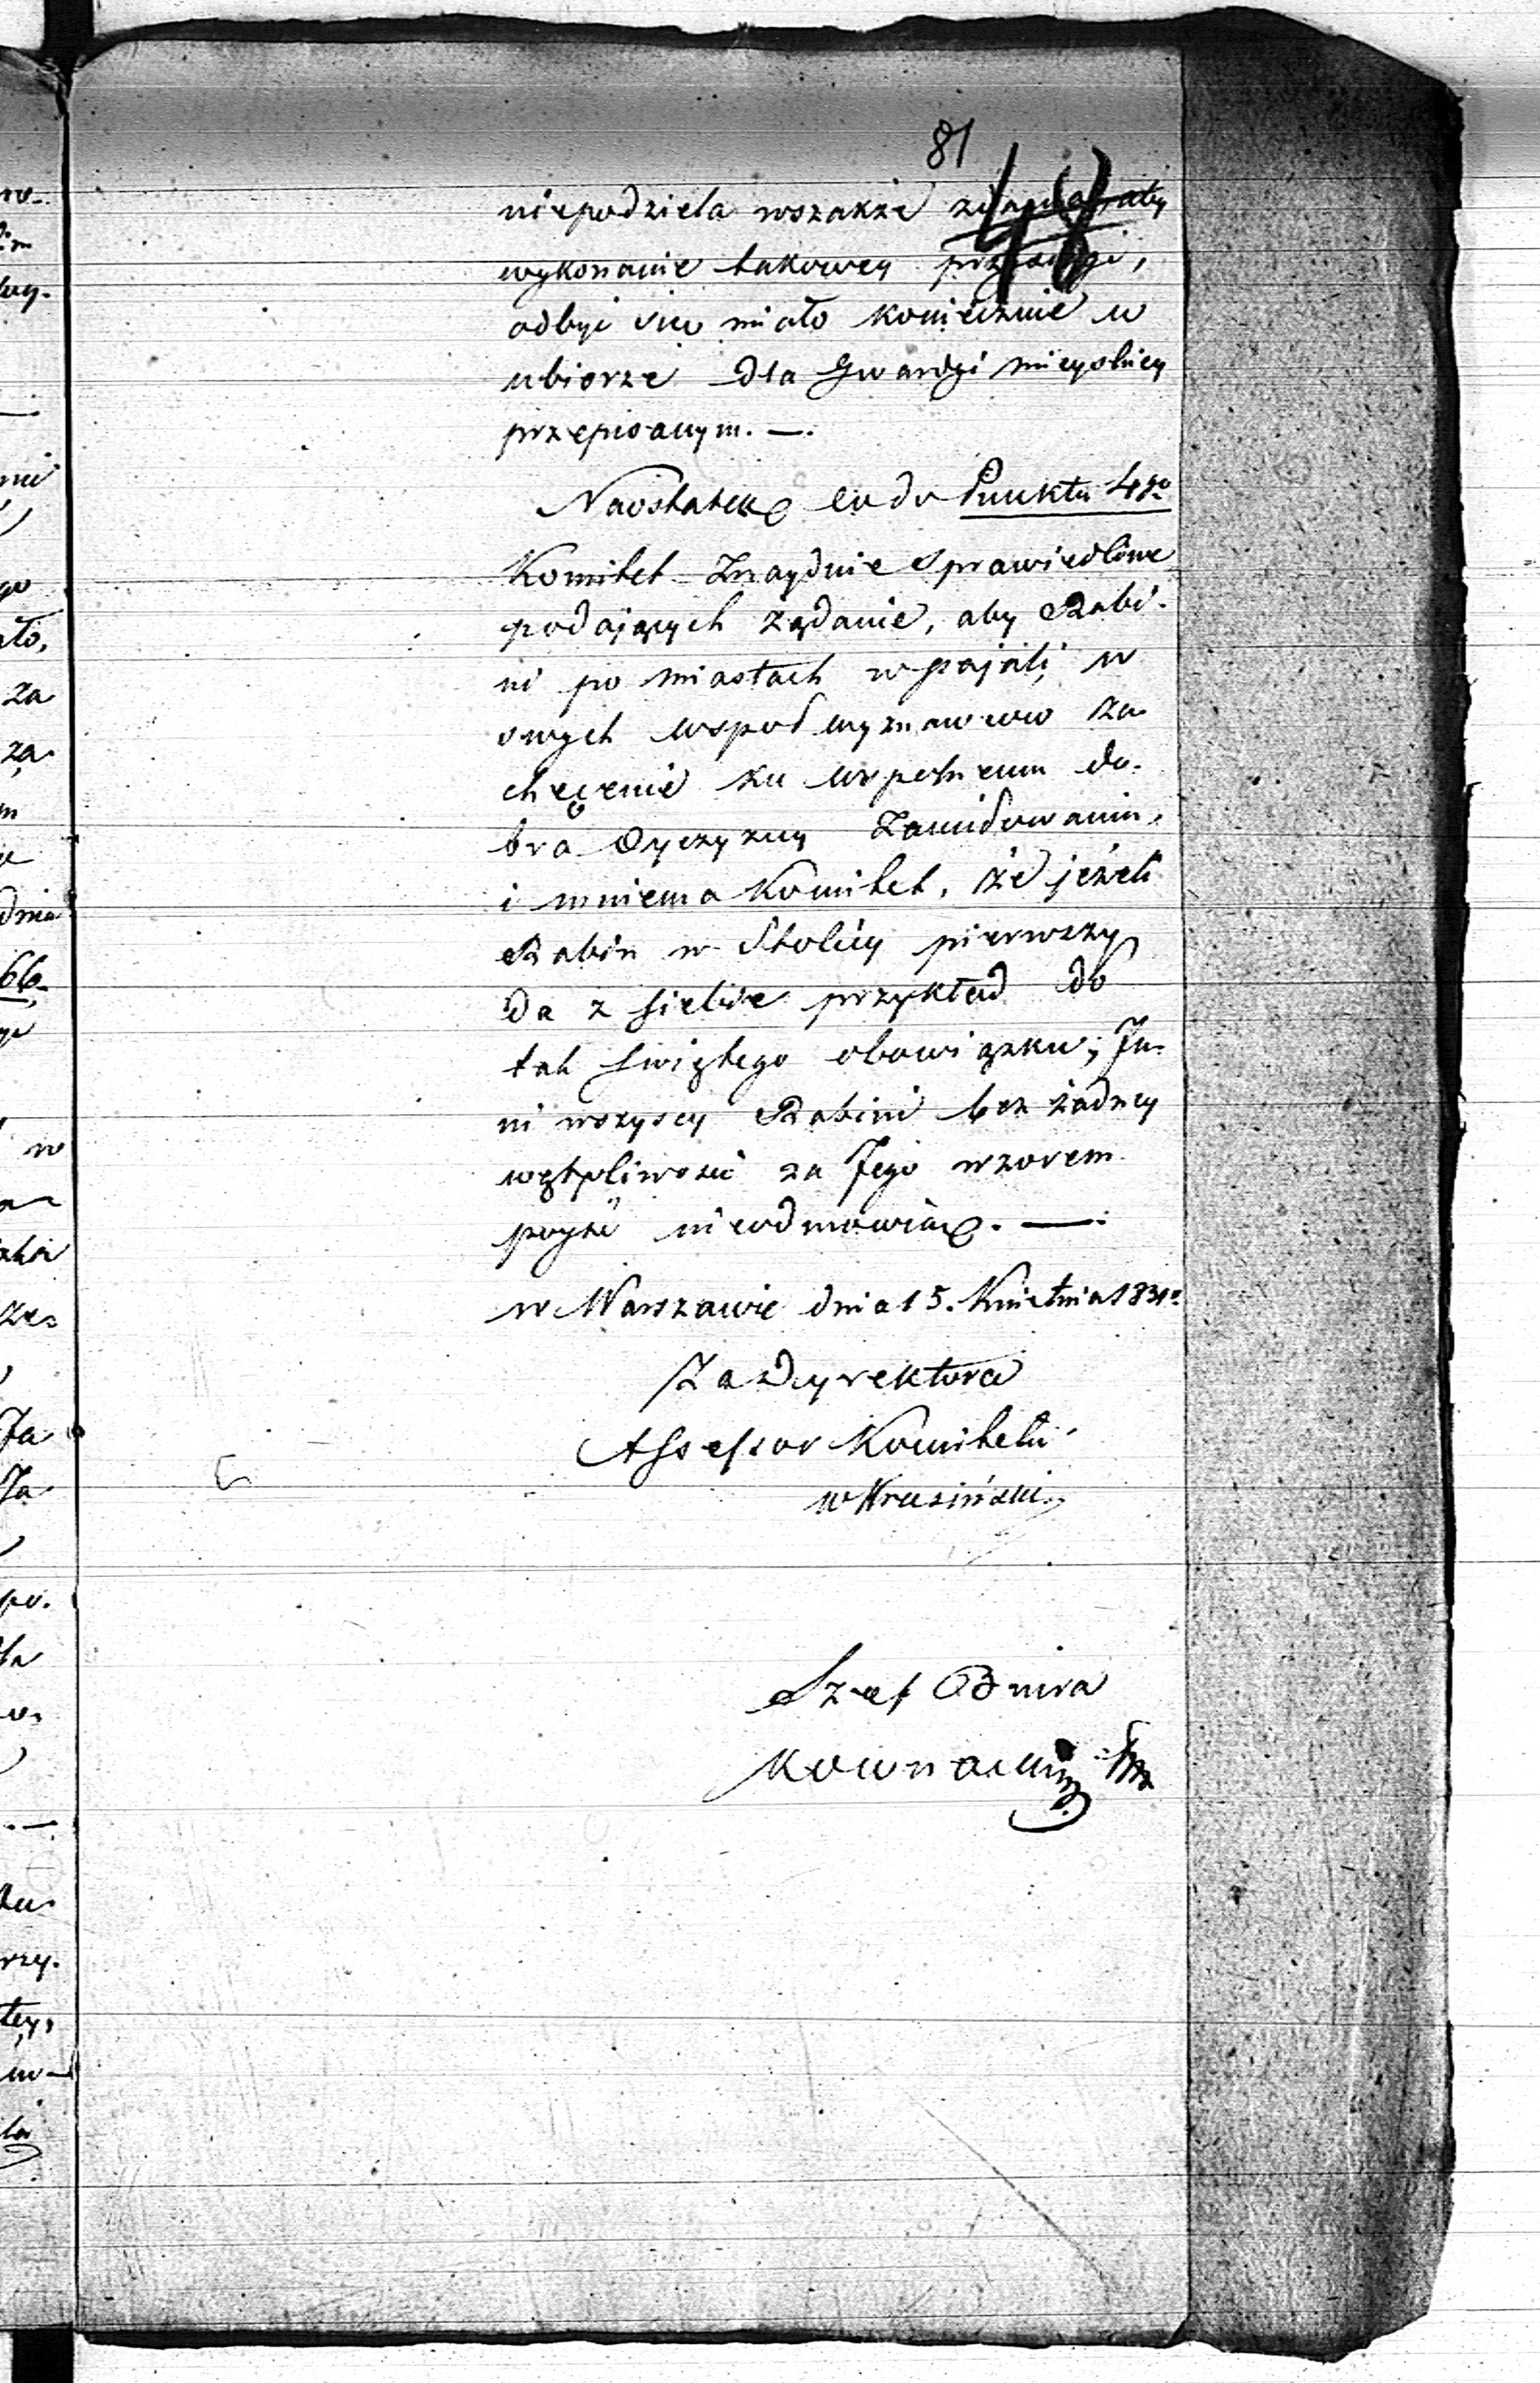 81
48
niepodziela wszakże zdania, aby
wykonanie takowey przysięgi,
odbyć się miało koniecznie w
ubiorze dla Gwardyi mieyskiey
przepisanym. —.
Naostatek co do Punktu 4go
Komitet Znayduie sprawiedliwe
podających żądanie, aby Rabi-
ni po miastach wpajali w
swych wspołwyznawcow za-
chęcenie ku wspolnemu do-
bra Oyczyzny Zamiłowaniu,
i mniema Komitet, że jeżeli
Rabin w Stolicy pierwszy
da z siebie przykład do
tak świętego obowiązku; In-
ni wszyscy Rabini bez żadney
wątpliwości za Jego wzorem
poyść nieodmowią. —.
w Warszawie dnia 15. Kwietnia 1831 r.
Za Dyrektora
Assessor Komitetu
W Kruziński
Szef Biura
Kownacki
no-
wy-
go
ało,
za
za-
m
dnia
66.
w
ze-
Ja
Za
po-
ła
rzy-
tey,